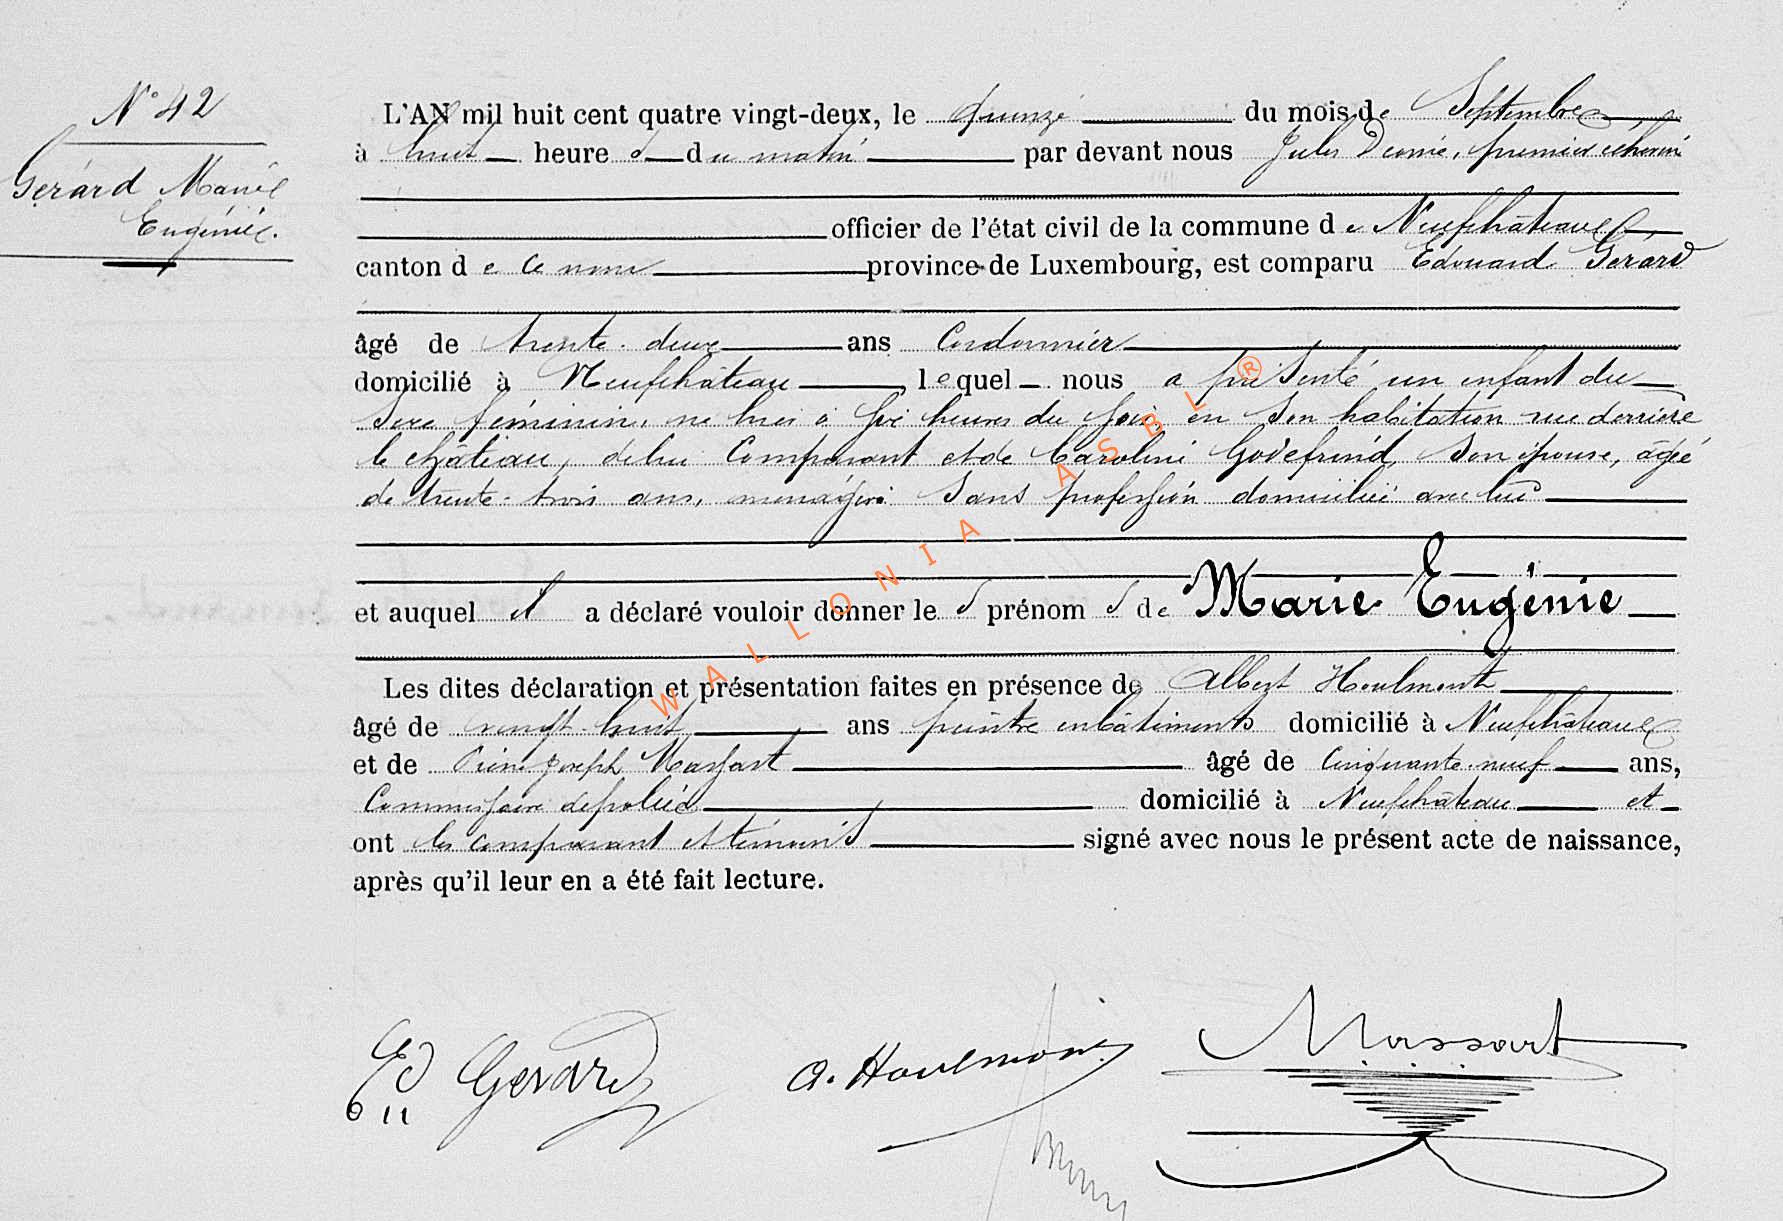 N° 42
Gérard Marie
Eugénie.
L'AN mil huit cent quatre vingt-deux, le quinze du mois de Septembre
à huit heures du matin par devant nous Jules premier échevin
officier de l'état civil de la commune de Neufchâteau
canton de ce nom province de Luxembourg, est comparu Edouard Gérard
âgé de trente-deux ans Cordonnier
domicilié à Neufchâteau, lequel nous a présenté un enfant du
Sexe féminin, né hier à six heures du soir, en son habitation rue derrière
le château, de lui Comparant et de Caroline Godefrind, son épouse, âgée
de trente-trois ans, ménagère sans profession domiciliée avec lui
et auquel il a déclaré vouloir donner les prénoms de Marie Eugénie
Les dites déclaration et présentation faites en présence de Albert Houlmont
âgé de vingt-huit ans peintre en bâtiments domicilié à Neufchâteau
et de Pierre Joseph Massart âgé de Cinquante-neuf ans,
Commissaire de police domicilié à Neufchâteau et
ont les comparant et témoins signé avec nous le présent acte de naissance,
après qu'il leur en a été fait lecture.
Ed Gerard A. Houlmont Massart
WALLONIA ASBL ®